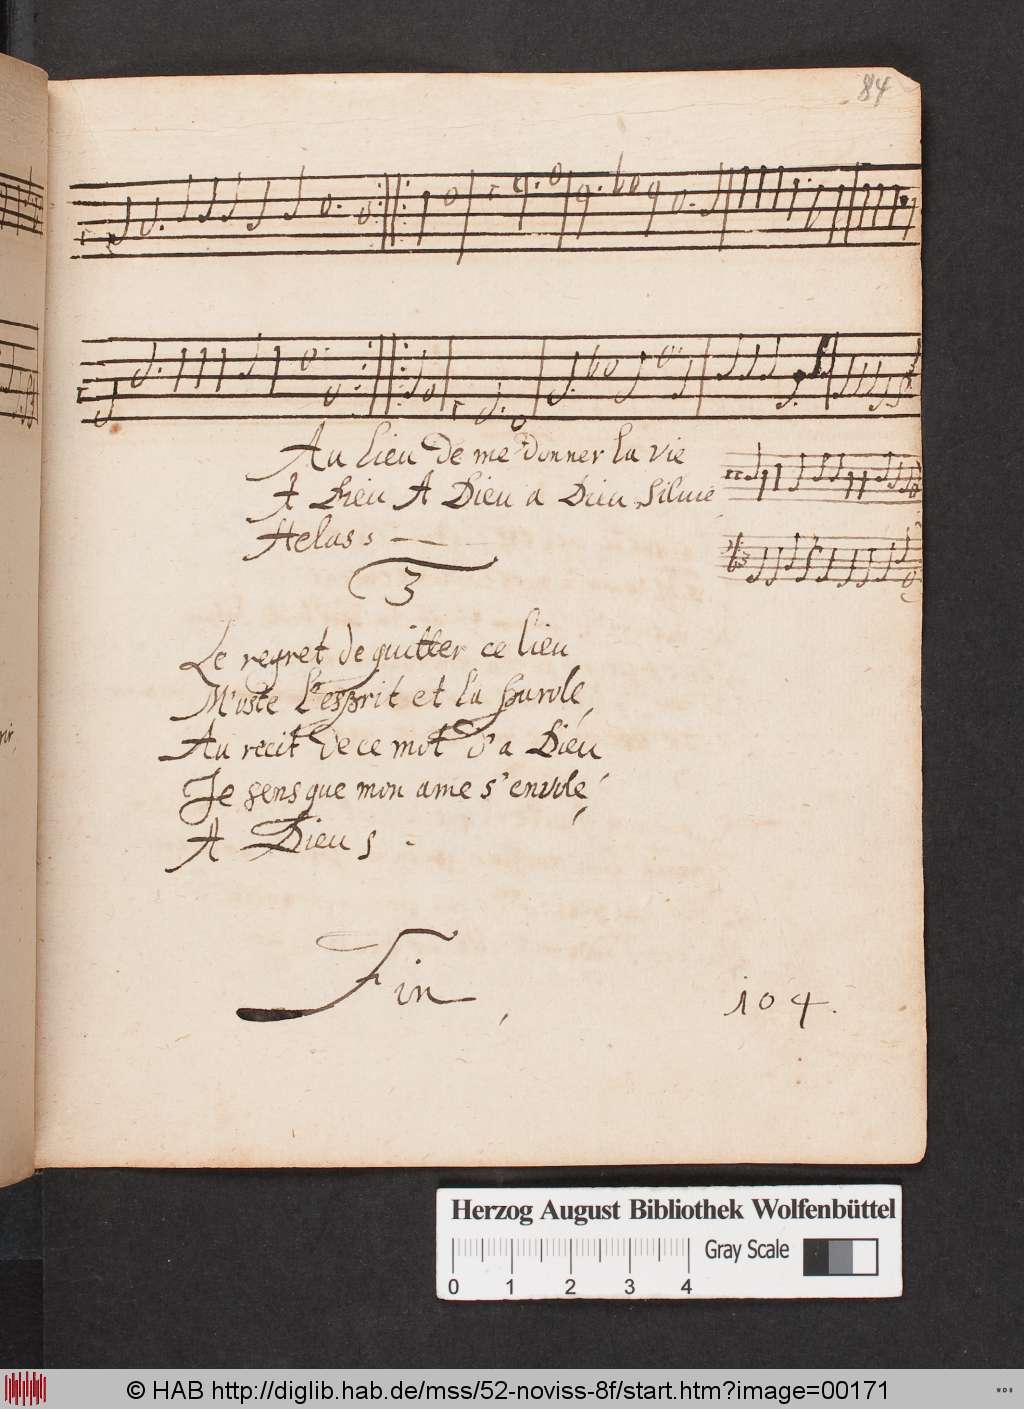 84
Au lieu de me donner la vie
A Dieu A Dieu a Dieu Silvie
Helas :
3
Le regret de quitter ce lieu
M'oste l'esprit et la parole,
Au recit de ce mot d'a Dieu
Je sens que mon ame s'envole,
A Dieu
Fin
104.
Herzog August Bibliothek Wolfenbüttel
Gray Scale
0 1 2 3 4
© HAB http://diglib.hab.de/mss/52-noviss-8f/start.htm?image=00171